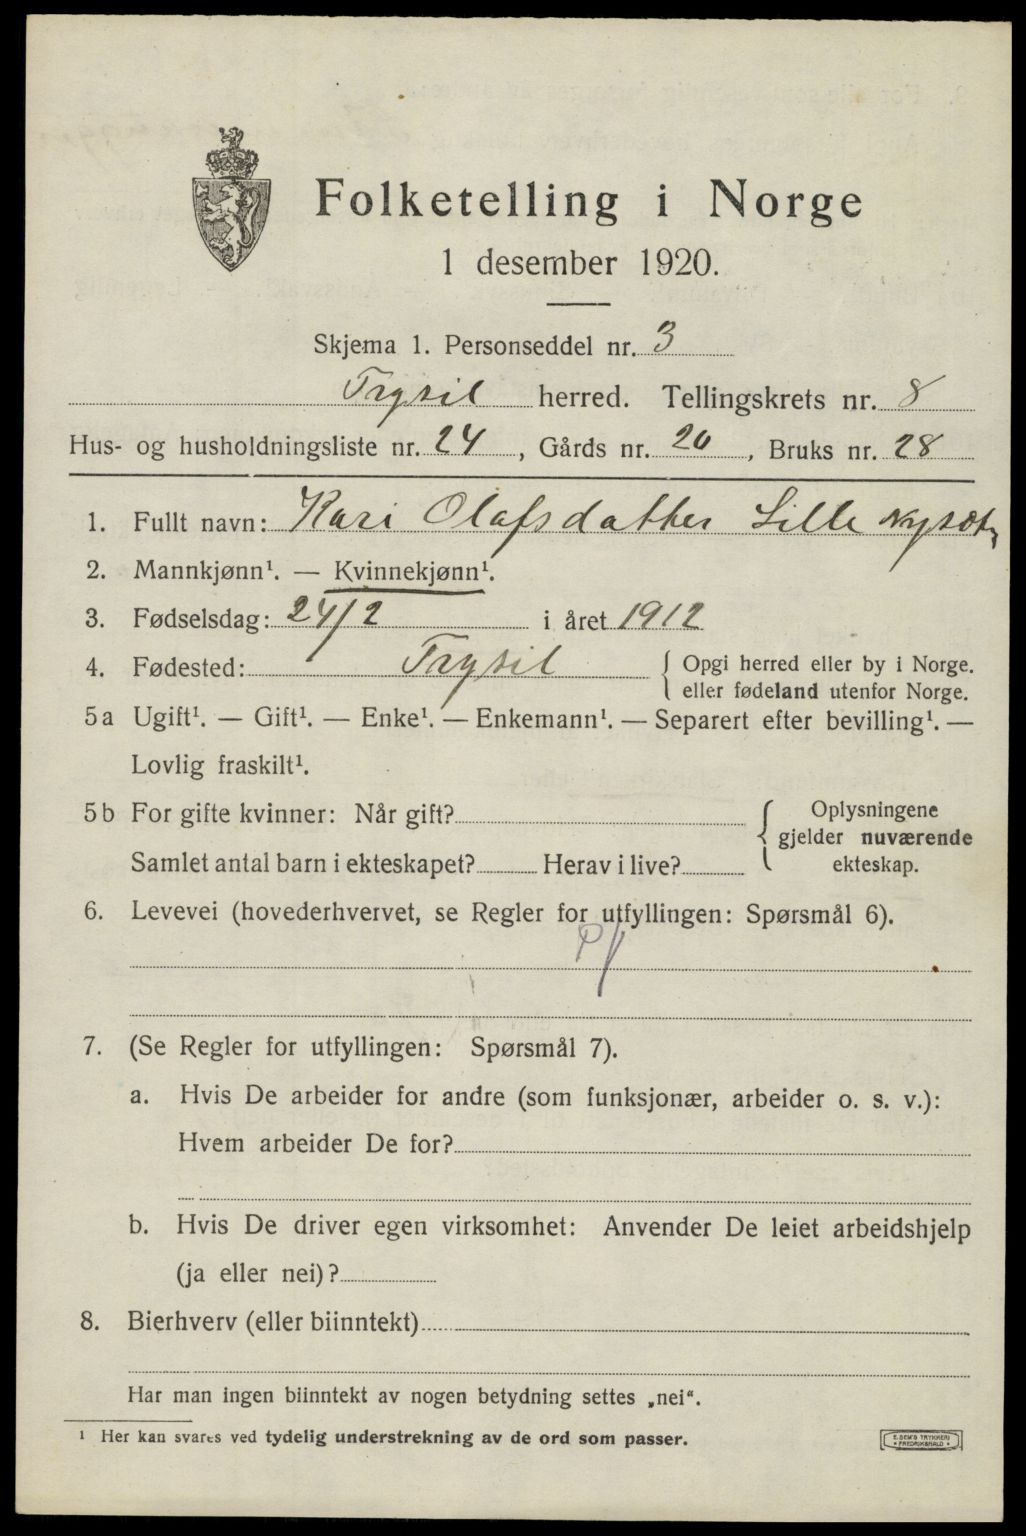 Folketelling i Norge
1 desember 1920.
Skjema 1. Personseddel nr. 3
Trysil herred. Tellingskrets nr. 8
Hus- og husholdningsliste nr. 24, Gårds nr. 20, Bruks nr. 28
1. Fullt navn: Kari Olafsdatter Lille Nysæt,
2. Mannkjønn¹. — Kvinnekjønn¹.
3. Fødselsdag: 24/2 i året 1912
4. Fødested: Trysil { Opgi herred eller by i Norge.
eller fødeland utenfor Norge.
5a Ugift¹. — Gift¹. — Enke¹. — Enkemann¹. — Separert efter bevilling¹. —
Lovlig fraskilt¹.
5b For gifte kvinner: Når gift? { Oplysningene
gjelder nuværende
Samlet antal barn i ekteskapet? Herav i live? ekteskap.
6. Levevei (hovederhvervet, se Regler for utfyllingen: Spørsmål 6).
P/
7. (Se Regler for utfyllingen: Spørsmål 7).
a. Hvis De arbeider for andre (som funksjonær, arbeider o. s. v.):
Hvem arbeider De for?
b. Hvis De driver egen virksomhet: Anvender De leiet arbeidshjelp
(ja eller nei)?
8. Bierhverv (eller biinntekt)
Har man ingen biinntekt av nogen betydning settes „nei".
¹ Her kan svares ved tydelig understrekning av de ord som passer.
E. SEM'S TRYKKERI
• FREDRIKSHALD •